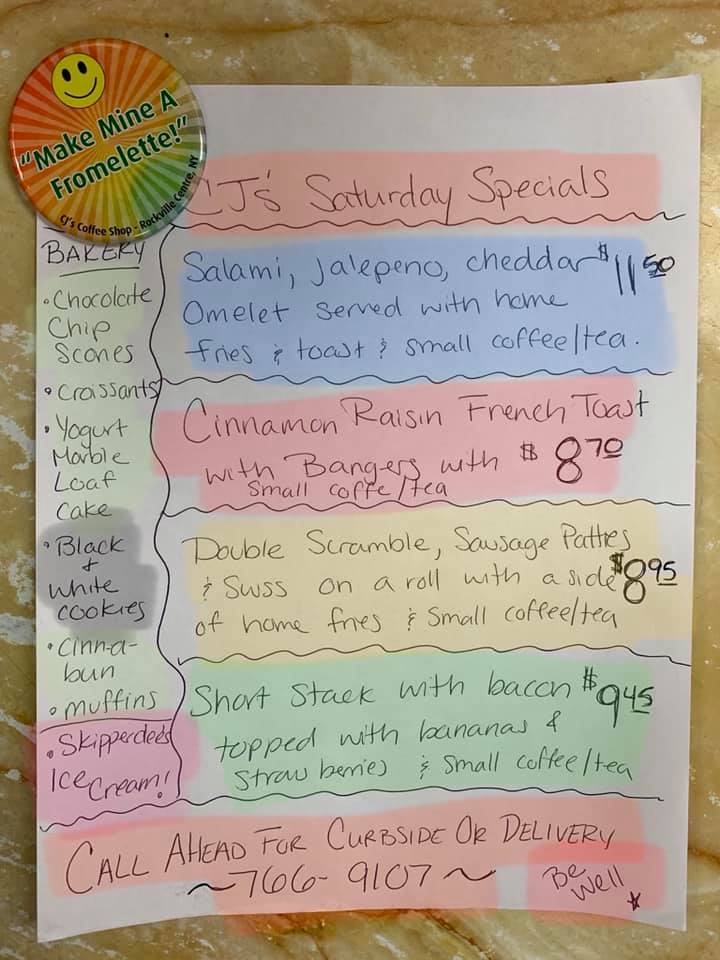 "Make Mine A
Fromelette!"
CJ's Coffee Shop - Rockville Centre, NY
CJ's Saturday Specials
BAKERY
• Chocolate
Chip
Scones
• Croissants
• Yogurt
Marble
Loaf
Cake
• Black
+
White
cookies
• Cinn-a-
bun
• muffins
• Skipperdee's
Ice Cream!
Salami, jalepeno, cheddar $11.50
Omelet served with home
fries & toast & small coffee/tea.
Cinnamon Raisin French Toast
with Bangers with $8.70
Small coffe/tea
Double Scramble, Sausage Patties
& Swiss on a roll with a side $8.95
of home fries & small coffee/tea
Short Stack with bacon $9.45
topped with bananas &
strawberries & small coffee/tea
CALL AHEAD FOR CURBSIDE OR DELIVERY
~766-9107~
Be
Well